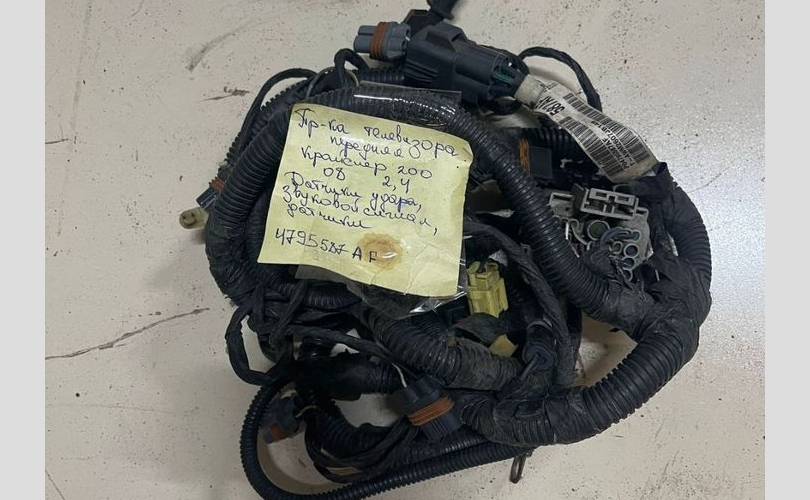 Пр-ка телевизора
передняя
Крайслер 200
08 2,4
Датчики удара,
звуковой сигнал,
датчики
4795587AF